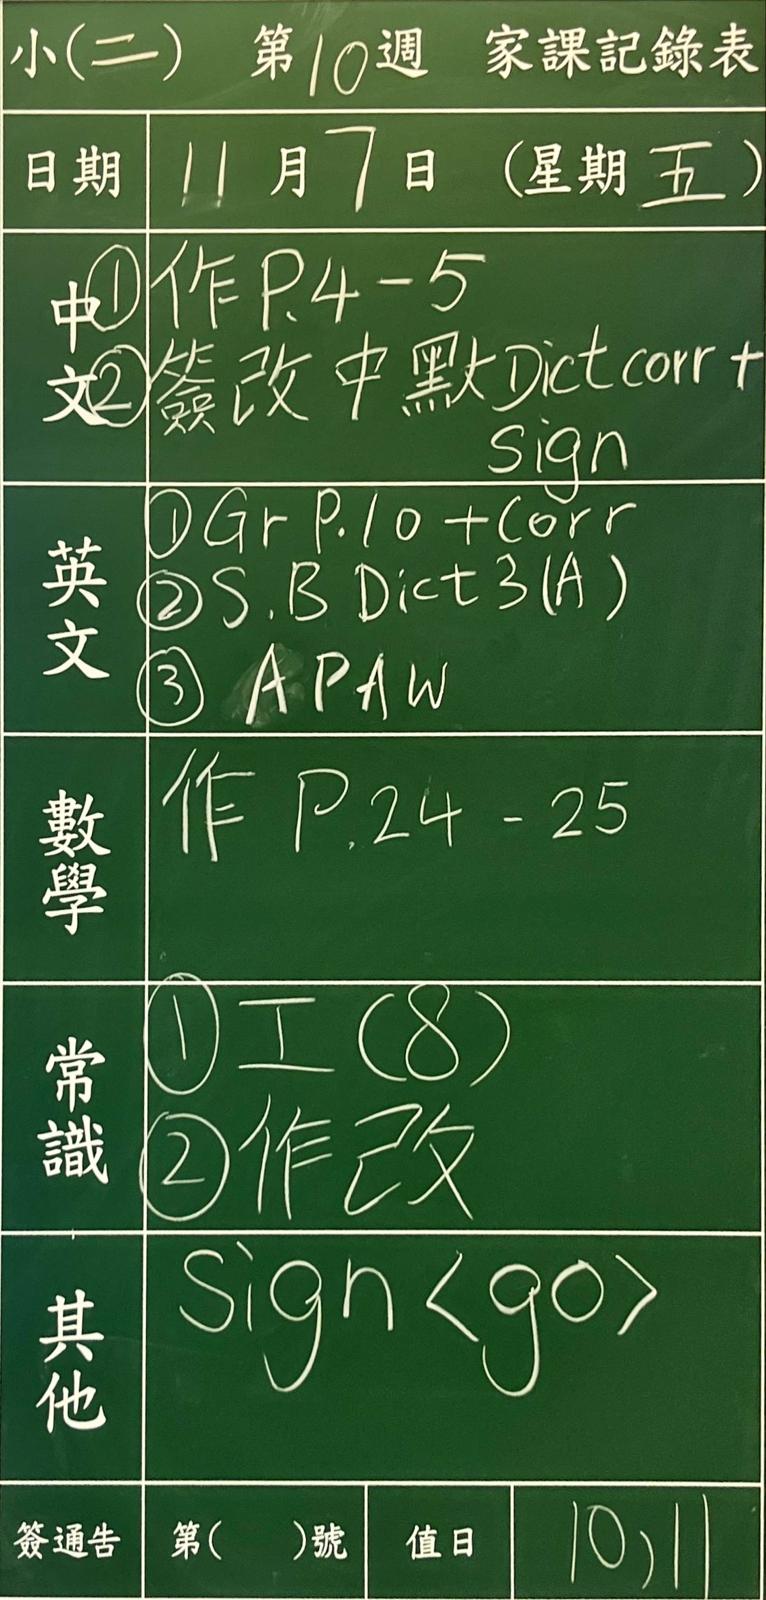 小(二) 第10週 家課記錄表
日期 11月7日 (星期五)
中文 ①作P.4-5
②簽改中默Dict corr +
sign
英文 ①Gr P.10 +Corr
②S.B Dict 3(A)
③ APAW
數學 作 P.24 - 25
常識 ①工(8)
②作改
其他 Sign <go>
簽通告 第( )號 值日 10,11